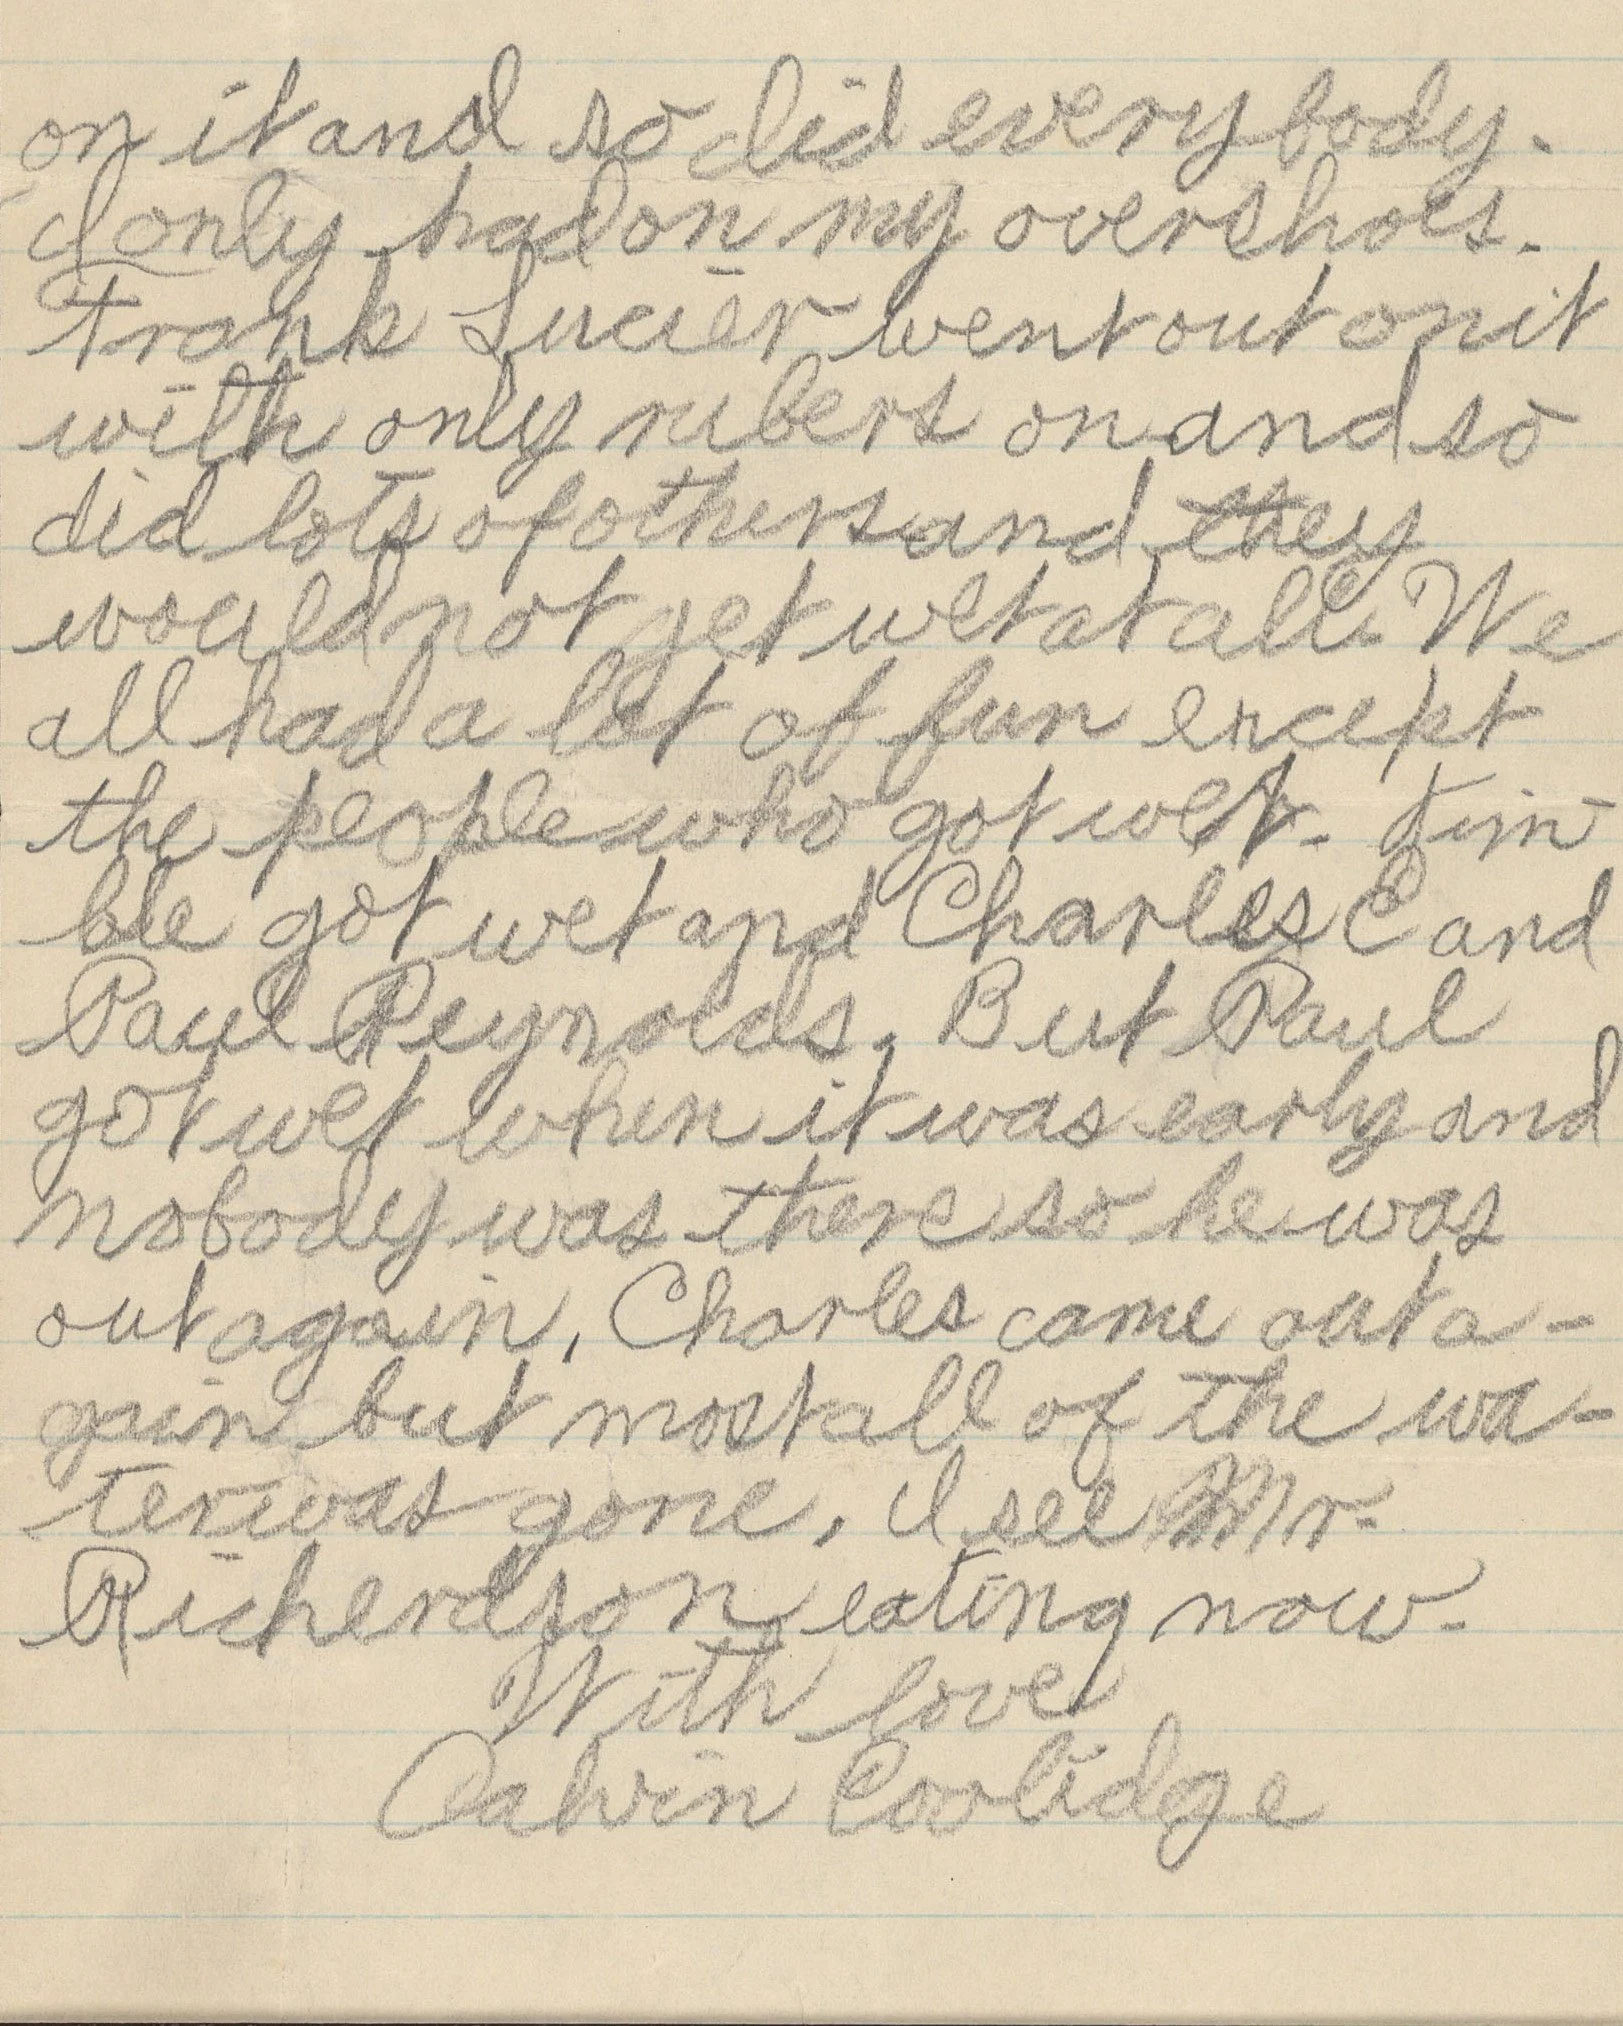 on it and so did everybody.
I only had on my overshoes.
Frank Lucier went out on it
with only rubers on and so
did lots of others and they
would not get wet at all. We
all had a lot of fun except
the people who got wet. Jim
bee got wet and Charles C and
Paul Reynolds. But Paul
got wet when it was early and
nobody was there so he was
out again, Charles came out a-
gain but most all of the wa-
ter was gone, I see Mr.
Richerdson eating now.
With love
Calvin Coolidge